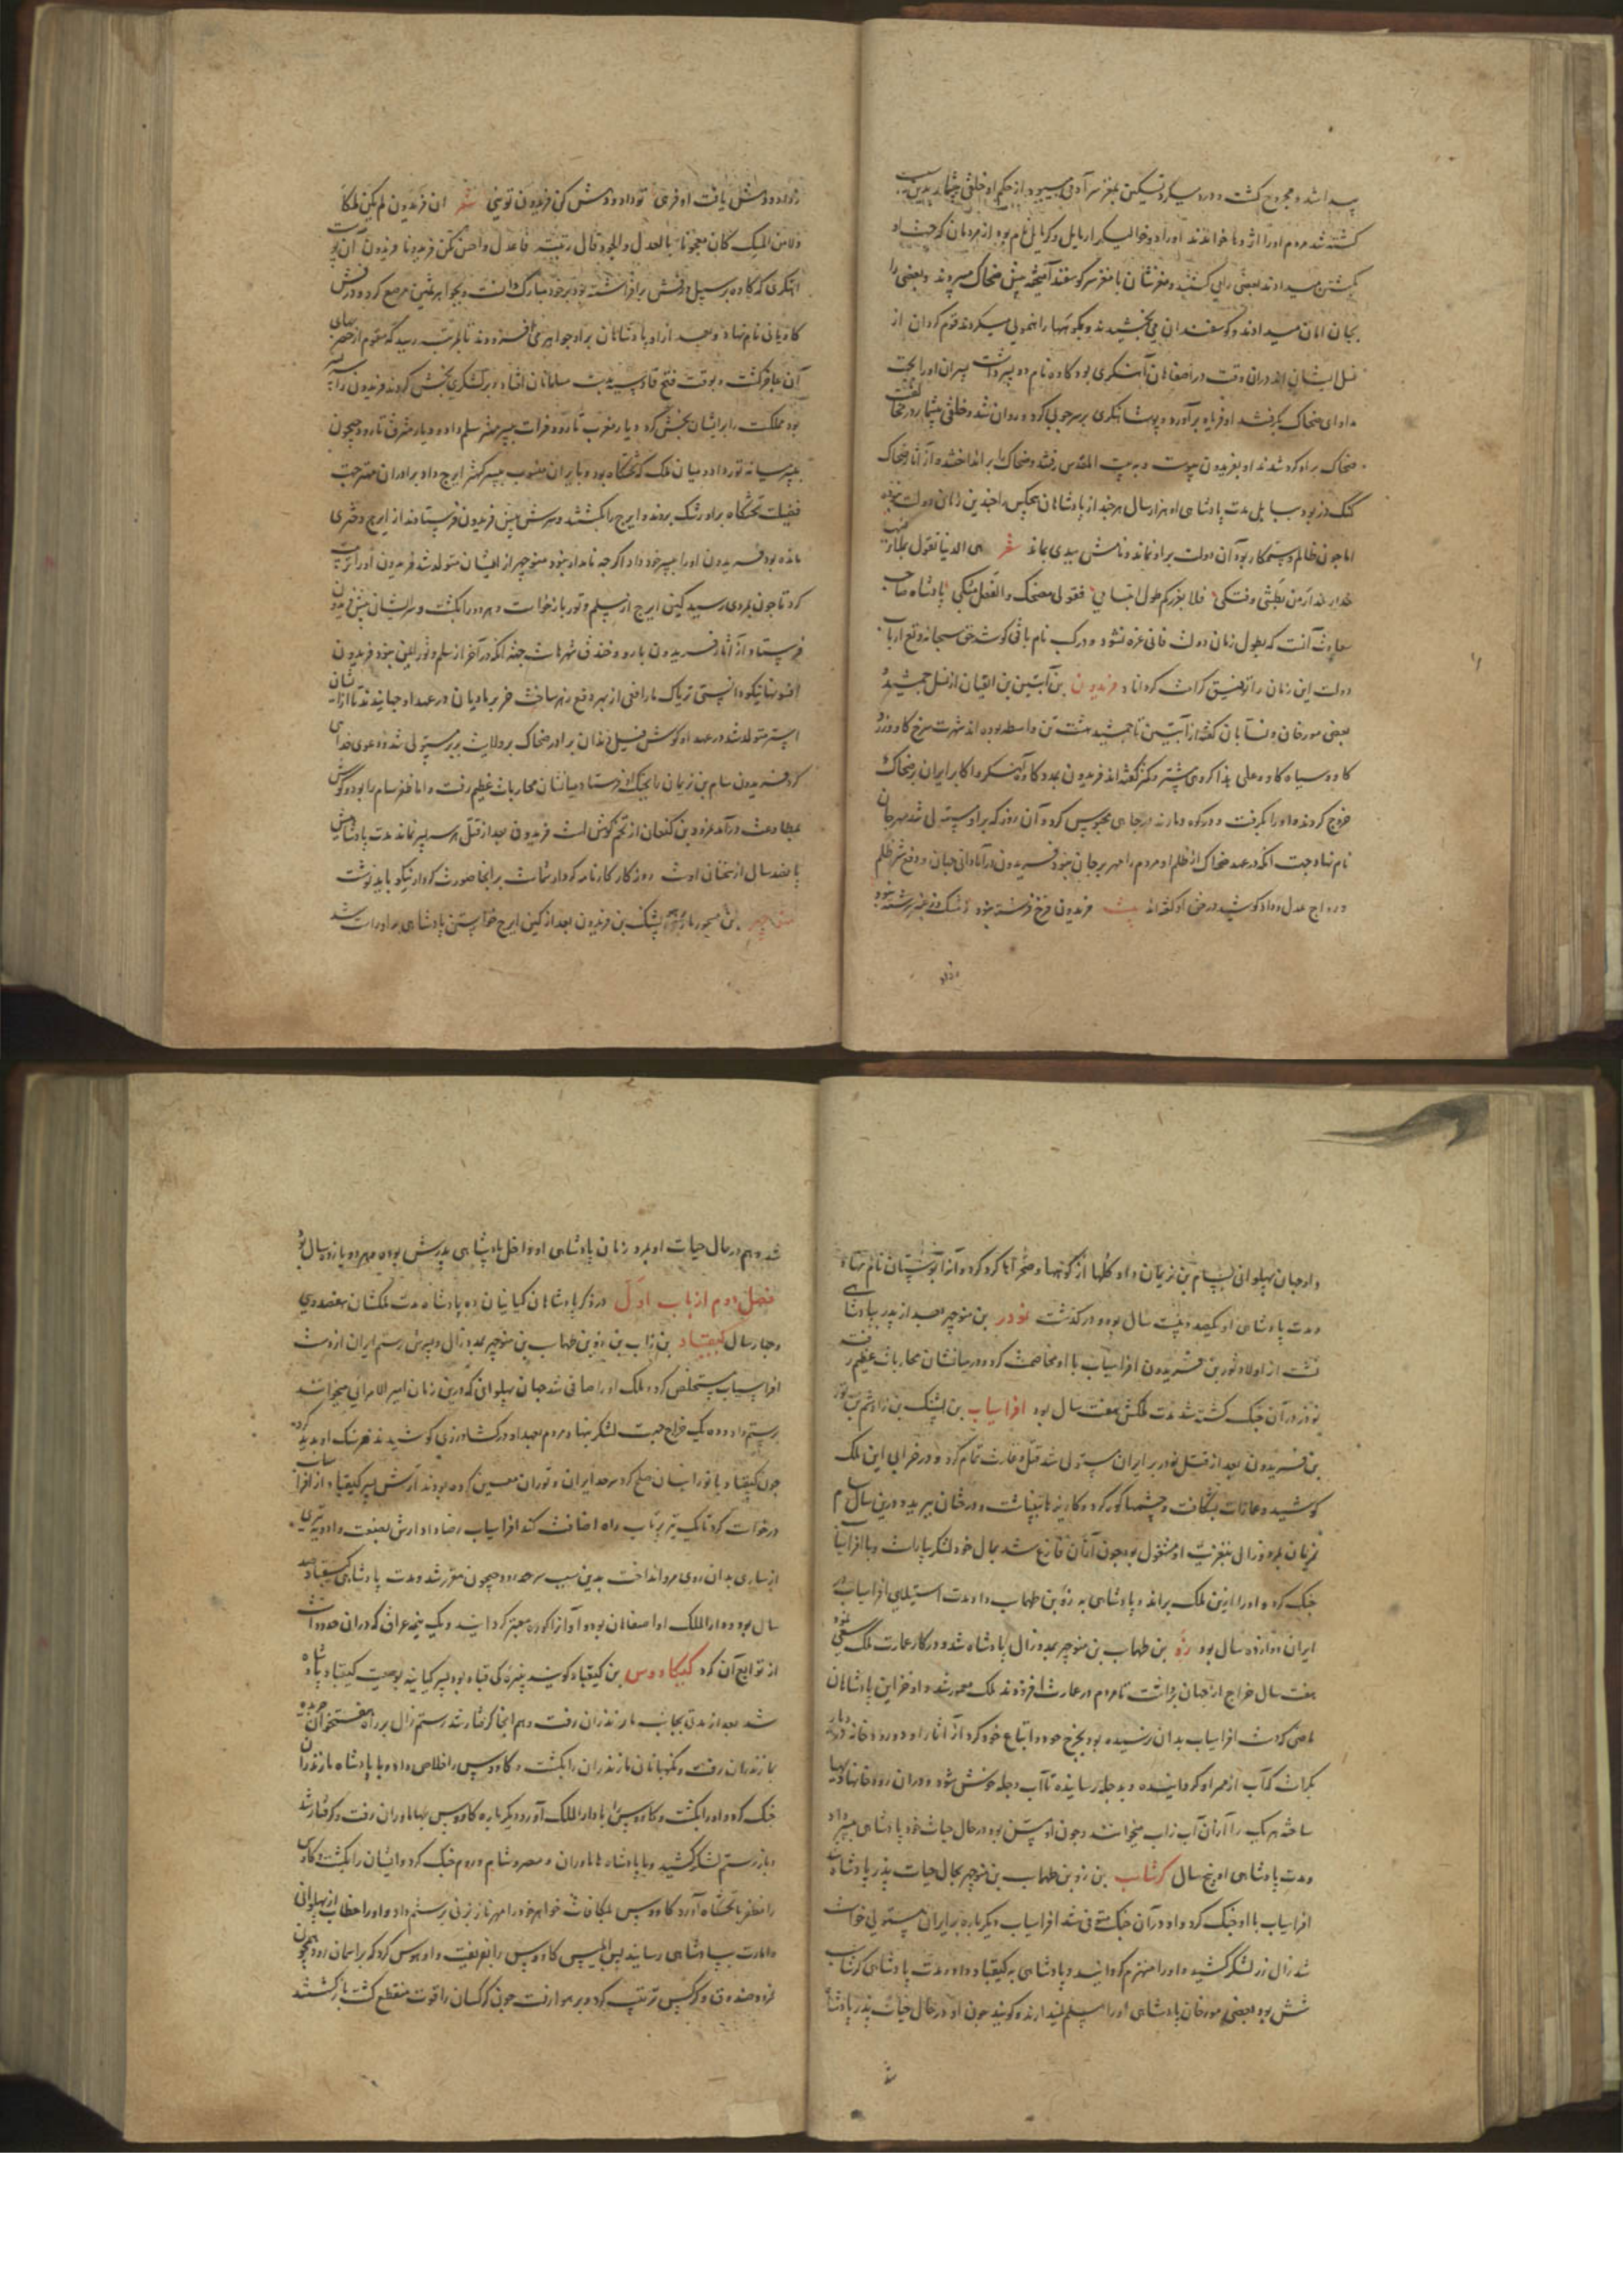 پیدا شد و مجروح گشت و درد میکرد تسکین بمغز سر آدمی میبود از حکم او خلقی بیشمار بدین سبب
کشته شد مردم او را اژدها خواندند او را دو خوالیگر ارمایل و کرمایل نام بود از مردمان که جهت او
بکشتن میدادند بعضی را می کشتند و مغزشان با مغز سر گوسفند آمیخته پیش ضحاک میبردند و بعضی را
بجان امان میدادند و گوسفندان می بخشیدند و بکوهها راهنمونی میکردند قوم کردان از
نسل ایشان اند در آن وقت در اصفاهان آهنگری بود کاوه نام دو پسر داشت پسران او را بجهت
مداوای ضحاک بگرفتند او فریاد برآورد و پوست آهنگری بر سر چوبی کرد و روان شد و خلقی بیشمار در مخالفت
ضحاک بر او گرد شدند او بفریدون پیوست و به بیت المقدس رفتند و ضحاک را برانداختند و از آثار ضحاک
گنگ دز بود ببابل مدت پادشاهی او هزار سال هر چند از پادشاهان هیچکس را چندین زمان دولت نبوده
اما چون ظالم و ستمکار بود آن دولت بر او نماند و نامش ببدی بماند شعر هی الدنیا تقول بملء فیها
حذار حذار من بطشی و فتکی فلا یغررکم طول ابتسامی فقولی مضحک و الفعل مبکی پادشاه صاحب
سعادت آنست که بطول زمان دولت فانی غره نشود و در کسب نام باقی کوشد حق سبحانه و تع ارباب
دولت این زمان را توفیق کرامت کرداناد فریدون بن آبتین بن اتقیان از نسل جمشید
بعضی مورخان و نسابان گفته از آبتین تا جمشید هشت تن واسطه بوده اند شهرت سرخ گاو و زرد
گاو و سیاه گاو و علی هذا گروهی بیشتر و کمتر گفته اند فریدون بمدد کاوه آهنگر و اکابر ایران بر ضحاک
خروج کردند و او را بگرفت و در کوه دماوند در چاهی محبوس کرد و آن روز که بر او مستولی شد مهرجان
نام نهاد و جهت آنکه در عهد ضحاک از ظلم او مردم را مهر بر جان نبود فریدون در آبادانی جهان و دفع شر ظلم
و رواج عدل و داد کوشید در حق او گفته اند بیت فریدون فرخ فرشته نبود ز مشک و ز عنبر سرشته نبود
بداد
ز داد و دهش یافت او فرهی تو داد و دهش کن فریدون تویی شعر ان فریدون لم یکن ملکا
ولا من الملیک کان معجونا بالعدل و الجود نال رتبته فاعدل و احسن تکن فریدونا فریدون آن پوست
آهنگری که کاوه بر سبیل درفش برافراشته بود بر خود مبارک دانست و بجواهر ثمین مرصع کرد و درفش
کاویان نام نهاد و بعد از او پادشاهان بر او جواهر می افزودند تا بمرتبه رسید که مقوم از حصر بهای
آن عاجز گشت و بوقت فتح قادسیه بدست مسلمانان افتاد و بر لشکری بخش کردند فریدون را سه پسر
بود مملکت را بر ایشان بخش کرد دیار مغرب تا رود فرات بپسر مهتر سلم داد و دیار مشرق تا رود جیحون
بپسر میانه تور داد و میان ملک که تختگاه بود و با ایران منسوب بپسر کهتر ایرج داد برادران مهتر جهت
فضیلت تختگاه بر او رشک بردند و ایرج را بکشتند و سرش پیش فریدون فرستادند از ایرج دختری
مانده بود فریدون او را بپسر خود داد اگرچه نامدار نبود منوچهر از ایشان متولد شد فریدون او را تربیت
کرد تا چون بمردی رسید کین ایرج از سلم و تور بازخواست و هر دو را بکشت و سر ایشان پیش فریدون
فرستاد و از آثار فریدون بارو و خندق شهرهاست چه آنکه در آخر از سلم و تور ایمن نبود فریدون
افسونها نیکو دانستی تریاک مار افعی از بهر دفع زهر ساخت خر بر مادیان در عهد او جهانیدند تا از ایشان
استر متولد شد در عهد او کوش فیل دندان برادر ضحاک بر ولایت بربر مستولی شد و دعوی خدایی
کرد فریدون سام بن نریمان را بجنگ او فرستاد میانشان محاربات عظیم رفت و اما ظفر سام را بود و کوش
بطاعت درآمد نمرود بن کنعان از تخم کوش است فریدون بعد از قتل هر سه پسر نماند مدت پادشاهیش
پانصد سال از سخنان اوست روزگار کارنامه کردار شماست بر آنجا صورت کردار نیکو باید نوشت
منوچهر بن میحور بن پشنگ بن فریدون بعد از کین ایرج خواستن پادشاهی بر او راست شد
و او جهان پهلوانی بسام بن نریمان داد و گلها از کوهها و صحراها گرد کرد و آنرا بوستان نام نهاد
مدت پادشاهی او یکصد و بیست سال بود و درگذشت نوذر بن منوچهر بعد از پدر بپادشاهی
نشست از اولاد تور بن فریدون افراسیاب با او مخاصمت کرد و در میانشان محاربات عظیم رفت
نوذر در آن جنگ کشته شد مدت ملکش هفت سال بود افراسیاب بن پشنگ بن زادشم بن تور
بن فریدون بعد از قتل نوذر بر ایران مستولی شد قتل و غارت تمام کرد و در خرابی این ملک
کوشید و عمارات بشکافت و چشمها کور کرد و کاریزها بینباشت و درختان ببرید و درین سال سام
نریمان بمرد و زال بتعزیت او مشغول بود چون از آن فارغ شد بمال خود لشکر بیاراست و با افراسیاب
جنگ کرد و او را ازین ملک براند و پادشاهی به زو بن طهماسب داد مدت استیلای افراسیاب بر
ایران دوازده سال بود زو بن طهماسب بن منوچهر بمدد زال پادشاه شد و در کار عمارت ملک سعی نمود
هفت سال خراج از جهان برداشت تا مردم در عمارت افزودند ملک معمور شد و او خزاین پادشاهان
ماضی که دست افراسیاب بدان نرسیده بود بخرج خود و اتباع خود کرد از آثار او دو رودخانه در دیار
بکر است که آب از ممر او گردانیده و بدجله رسانیده تا آب دجله خوش شود و در آن رودخانها دیهها
ساخته هر یک را از آن آب زاب میخوانند و چون او مسن بود در حال حیات خود پادشاهی بپسر داد
مدت پادشاهی او پنج سال گرشاسب بن زو بن طهماسب بن منوچهر بحال حیات پدر پادشاه شد
افراسیاب با او جنگ کرد و او در آن جنگ متوفی شد افراسیاب دیگر باره بر ایران مستولی خواست
شد زال زر لشکر کشید و او را منهزم گردانید و پادشاهی به کیقباد داد و مدت پادشاهی گرشاسب
شش بود بعضی مورخان پادشاهی او را مسلم نمیدارند و گویند چون او در حال حیات پدر پادشاه
شد
شد و هم در حال حیات او بمرد زمان پادشاهی او داخل پادشاهی پدرش بوده و بهر دو یازده سال بود
فصل دوم از باب اول در ذکر پادشاهان کیانیان ده پادشاه مدت ملکشان هفصد و سی
و چهار سال کیقباد بن زاب بن زو بن طهماسب بن منوچهر بمدد زال و پسرش رستم ایران از دست
افراسیاب مستخلص کرد و ملک او را صافی شد جهان پهلوانی که درین زمان امیر الامرایی میخوانند
برستم داد و ده یک خراج جهت لشکر بنهاد و مردم بعهد او در کشاورزی کوشیدند فرسنگ او پدید کرد
چون کیقباد با تورانیان صلح کرد سرحد ایران و توران معین کرده بودند آرش پسر کیقباد از افراسیاب
درخواست کرد تا یک تیر پرتاب راه اضافت کند افراسیاب رضا داد آرش بصنعت و ادویه تیری
از ساری بدان روی مرو انداخت بدین سبب سرحد رود جیحون مقرر شد و مدت پادشاهی کیقباد صد
سال بود و دارالملک او اصفاهان بود و آوازا کوره معتبر گردانید و یک نیمه عراق که در آن حدود است
از توابع آن کرد کیکاووس بن کیقباد گویند نبیره کی قباد بود پسر کیابنه بوصیت کیقباد پادشاه
شد بعد از مدتی بجانب مازندران رفت و هم آنجا گرفتار شد رستم زال بر راه هفتخوان
بمازندران رفت و نگهبانان مازندران را بکشت و کاووس را خلاص داد و با پادشاه مازندران
جنگ کرد و او را بکشت و کاووس را بدارالملک آورد و دیگر باره کاووس بهاماوران رفت و گرفتار شد
و باز رستم لشکر کشید و با پادشاه هاماوران و مصر و شام و روم جنگ کرد و ایشان را بکشت و کاوس
را مظفر با تختگاه آورد کاووس بمکافات خواهر خود را مهرناز بزنی برستم داد و او را خطاب از پهلوانی
و امارت بپادشاهی رسانید پس ابلیس کاووس را بفریفت و او هوس کرد که بر آسمان رود همچون
نمرود صندوق و کرکس ترتیب کرد و بر هوا رفت چون کرکسان را قوت منقطع گشت بازگشتند